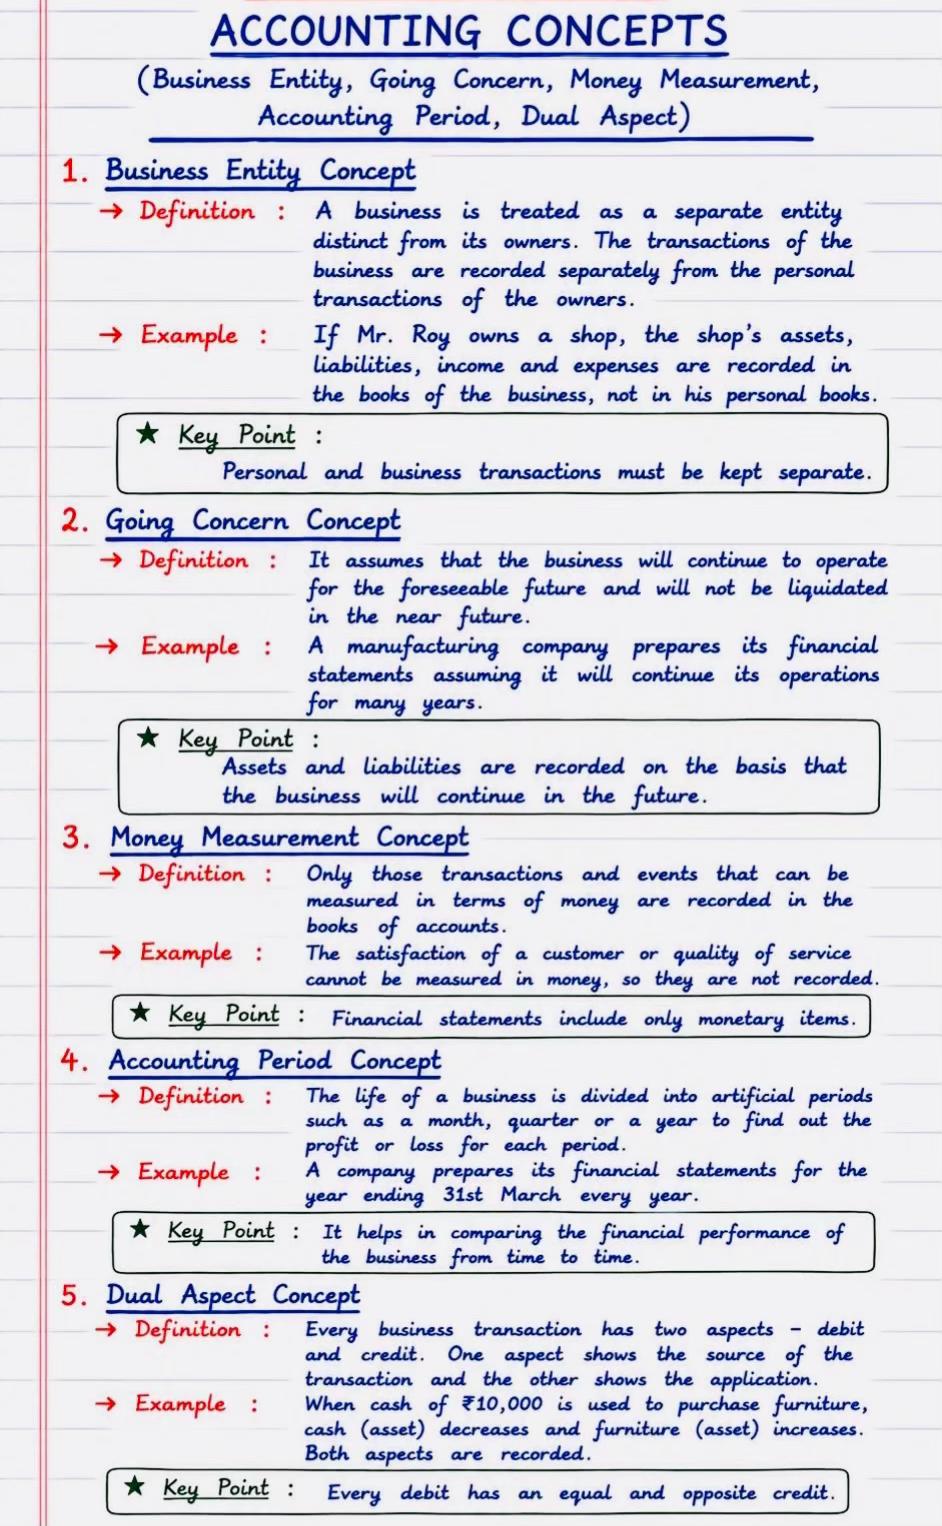 ACCOUNTING CONCEPTS
(Business Entity, Going Concern, Money Measurement,
Accounting Period, Dual Aspect)
1. Business Entity Concept
→ Definition : A business is treated as a separate entity
distinct from its owners. The transactions of the
business are recorded separately from the personal
transactions of the owners.
→ Example : If Mr. Roy owns a shop, the shop's assets,
liabilities, income and expenses are recorded in
the books of the business, not in his personal books.
★ Key Point :
Personal and business transactions must be kept separate.
2. Going Concern Concept
→ Definition : It assumes that the business will continue to operate
for the foreseeable future and will not be liquidated
in the near future.
→ Example : A manufacturing company prepares its financial
statements assuming it will continue its operations
for many years.
★ Key Point :
Assets and liabilities are recorded on the basis that
the business will continue in the future.
3. Money Measurement Concept
→ Definition : Only those transactions and events that can be
measured in terms of money are recorded in the
books of accounts.
→ Example : The satisfaction of a customer or quality of service
cannot be measured in money, so they are not recorded.
★ Key Point : Financial statements include only monetary items.
4. Accounting Period Concept
→ Definition : The life of a business is divided into artificial periods
such as a month, quarter or a year to find out the
profit or loss for each period.
→ Example : A company prepares its financial statements for the
year ending 31st March every year.
★ Key Point : It helps in comparing the financial performance of
the business from time to time.
5. Dual Aspect Concept
→ Definition : Every business transaction has two aspects – debit
and credit. One aspect shows the source of the
transaction and the other shows the application.
→ Example : When cash of ₹10,000 is used to purchase furniture,
cash (asset) decreases and furniture (asset) increases.
Both aspects are recorded.
★ Key Point : Every debit has an equal and opposite credit.